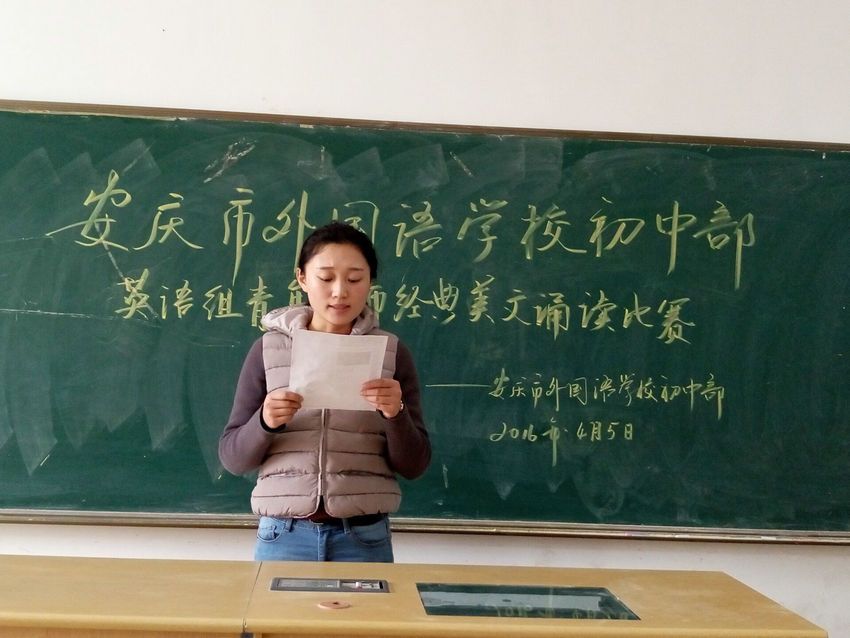 安庆市外国语学校初中部
英语组青 师经典美文诵读比赛
——安庆市外国语学校初中部
2016年4月5日